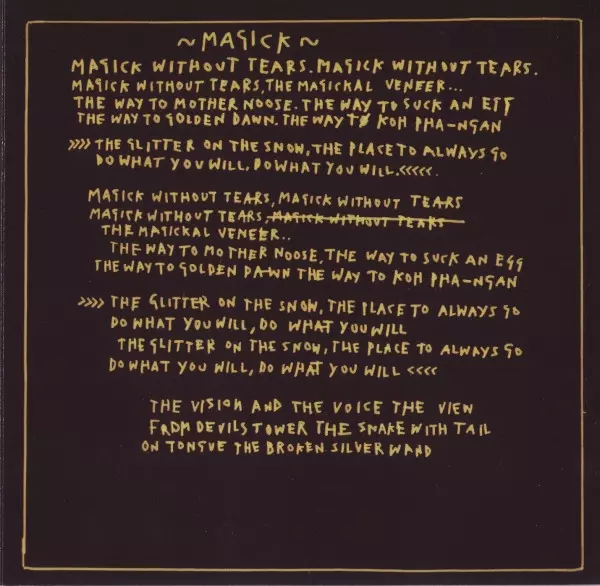 ~MAGICK~
MAGICK WITHOUT TEARS. MAGICK WITHOUT TEARS.
MAGICK WITHOUT TEARS, THE MAGICKAL VENEER...
THE WAY TO MOTHER NOOSE. THE WAY TO SUCK AN EGG
THE WAY TO GOLDEN DAWN. THE WAY TO KOH PHA-NGAN
>>>> THE GLITTER ON THE SNOW, THE PLACE TO ALWAYS GO
DO WHAT YOU WILL, DO WHAT YOU WILL.<<<<<.
MAGICK WITHOUT TEARS, MAGICK WITHOUT TEARS
MAGICK WITHOUT TEARS, MAGICK WITHOUT TEARS
THE MAGICKAL VENEER..
THE WAY TO MOTHER NOOSE, THE WAY TO SUCK AN EGG
THE WAY TO GOLDEN DAWN THE WAY TO KOH PHA-NGAN
>>>> THE GLITTER ON THE SNOW, THE PLACE TO ALWAYS GO
DO WHAT YOU WILL, DO WHAT YOU WILL
THE GLITTER ON THE SNOW, THE PLACE TO ALWAYS GO
DO WHAT YOU WILL, DO WHAT YOU WILL <<<<
THE VISION AND THE VOICE THE VIEW
FROM DEVILS TOWER THE SNAKE WITH TAIL
ON TONGUE THE BROKEN SILVER WAND